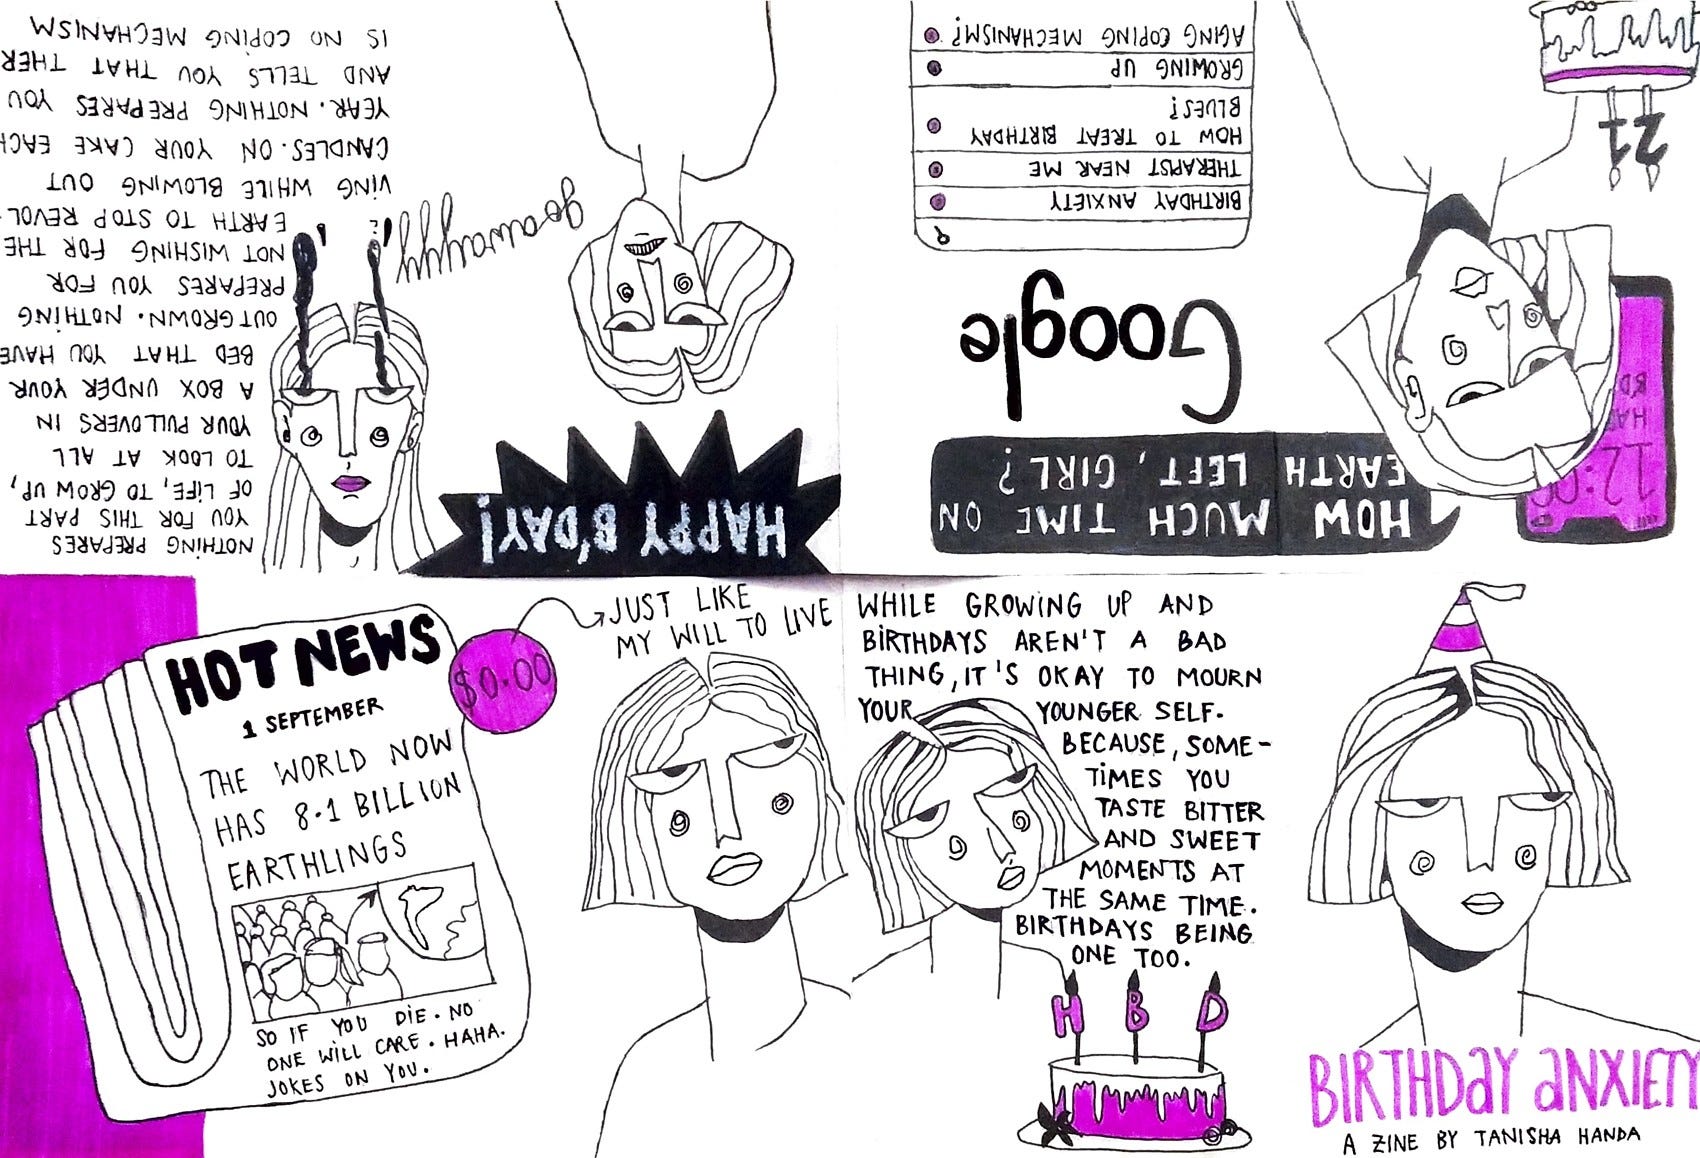 BIRTHDAY ANXIETY
A ZINE BY TANISHA HANDA
12:00
HOW MUCH TIME ON
EARTH LEFT, GIRL?
21
Google
BIRTHDAY ANXIETY
THERAPIST NEAR ME
HOW TO TREAT BIRTHDAY
BLUES?
GROWING UP
AGING COPING MECHANISM?
HAPPY B'DAY!
go awayyy
NOTHING PREPARES
YOU FOR THIS PART
OF LIFE, TO GROW UP,
TO LOOK AT ALL
YOUR PULLOVERS IN
A BOX UNDER YOUR
BED THAT YOU HAVE
OUTGROWN. NOTHING
PREPARES YOU FOR
NOT WISHING FOR THE
EARTH TO STOP REVOL-
VING WHILE BLOWING OUT
CANDLES. ON YOUR CAKE EACH
YEAR. NOTHING PREPARES YOU
AND TELLS YOU THAT THER
IS NO COPING MECHANISM
HOT NEWS
1 SEPTEMBER
THE WORLD NOW
HAS 8.1 BILLION
EARTHLINGS
SO IF YOU DIE. NO
ONE WILL CARE. HAHA.
JOKES ON YOU.
$0.00
JUST LIKE
MY WILL TO LIVE
WHILE GROWING UP AND
BIRTHDAYS AREN'T A BAD
THING, IT'S OKAY TO MOURN
YOUR YOUNGER SELF.
BECAUSE, SOME-
TIMES YOU
TASTE BITTER
AND SWEET
MOMENTS AT
THE SAME TIME.
BIRTHDAYS BEING
ONE TOO.
H B D